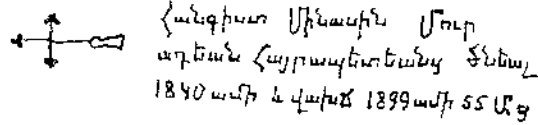 Հանգիստ Մինասին Մուր
ադեան Հայրապետեանց ծնեալ
1840 ամի և վախճ 1899 ամի 55 Մ. Ց